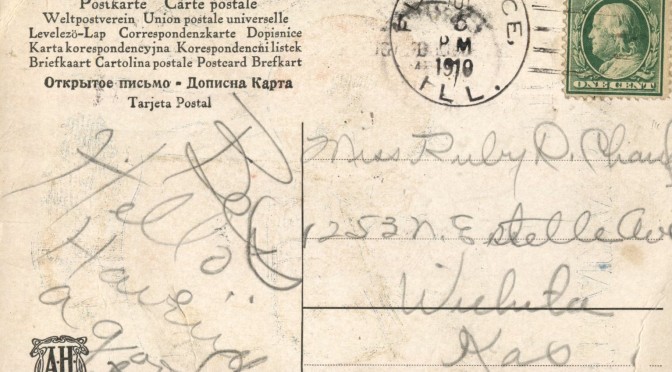 Postkarte Carte postale
Weltpostverein Union postale universelle
Levelező-Lap Correspondenzkarte Dopisnice
Karta korespondencyjna Korespondenčnílistek
Briefkaart Cartolina postale Postcard Brefkort
Открытое письмо - Дописна Карта
Tarjeta Postal
PM
1910
ILL.
ONE CENT
Miss Ruby D.
1253 N. Estelle Ave
Wichita
Kas
Hello
Having
a
AH